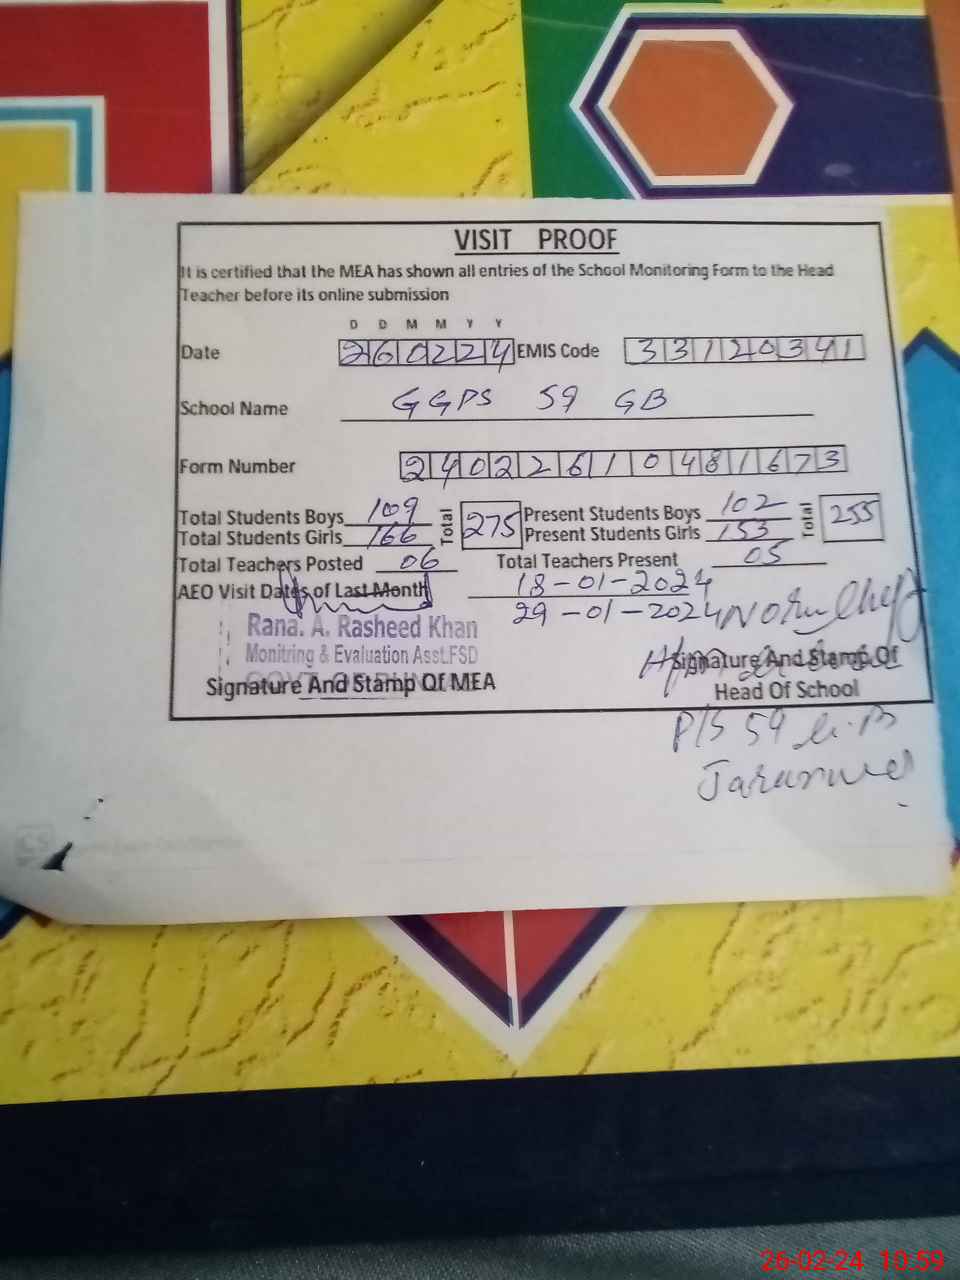 VISIT PROOF
It is certified that the MEA has shown all entries of the School Monitoring Form to the Head
Teacher before its online submission
D D M M Y Y
Date 260224 EMIS Code 33120341
School Name GGPS 59 GB
Form Number 24022610481673
Total Students Boys 109 Total 275 Present Students Boys 102 Total 255
Total Students Girls 166 Present Students Girls 153
Total Teachers Posted 06 Total Teachers Present 05
AEO Visit Dates of Last Month 18-01-2024
29-01-2024
Rana. A. Rasheed Khan
Monitring & Evaluation Asst.FSD
Signature And Stamp Of MEA
Signature And Stamp Of
Head Of School
P/S 59 G.B
26-02-24 10:59